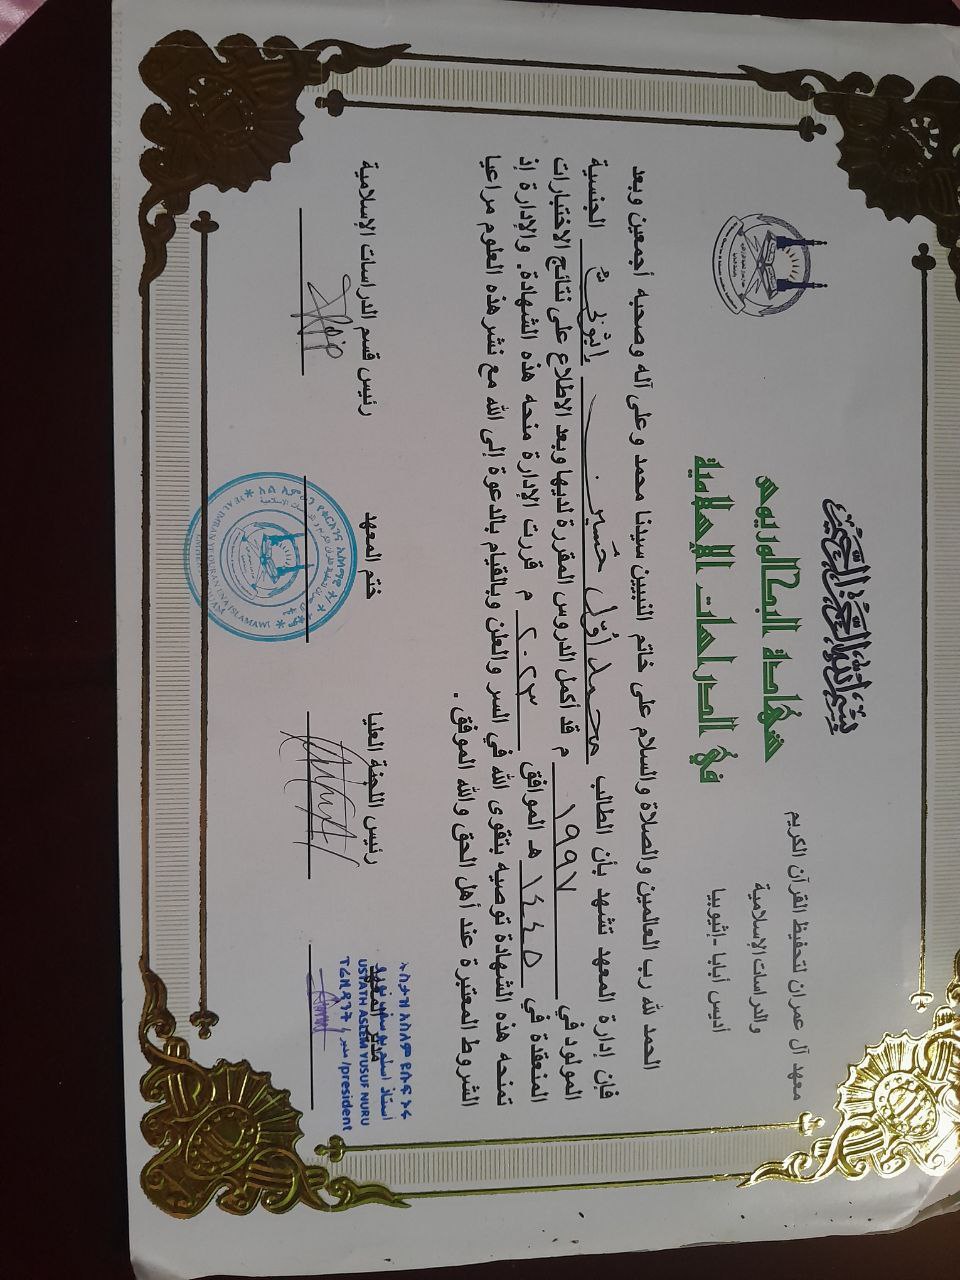 بسم الله الرحمن الرحيم
معهد آل عمران لتحفيظ القرآن الكريم
والدراسات الإسلامية
أديس أبابا - إثيوبيا
شهادة البكالوريوس
في الدراسات الإسلامية
الحمد لله رب العالمين والصلاة والسلام على خاتم النبيين سيدنا محمد وعلى آله وصحبه أجمعين وبعد
فإن إدارة المعهد تشهد بأن الطالب محمد أول حسين إثيوبي الجنسية
المولود في ١٩٩٧ م قد أكمل الدروس المقررة لديها وبعد الاطلاع على نتائج الاختبارات
المنعقدة في ١٤٤٥ هـ الموافق ٢٠٢٣ م قررت الإدارة منحه هذه الشهادة. والإدارة إذ
تمنحه هذه الشهادة توصيه بتقوى الله في السر والعلن وبالقيام بالدعوة إلى الله مع نشر هذه العلوم مراعيا
الشروط المعتبرة عند أهل الحق والله الموفق .
مدير المعهد
رئيس اللجنة العليا
ختم المعهد
رئيس قسم الدراسات الإسلامية
ኡስታዝ አስለም ዩሱፍ ኑሩ
أستاذ أسلم يوسف نورو
USTATH ASLEM YUSUF NURU
ፕሬዚዳንት / مدير /president